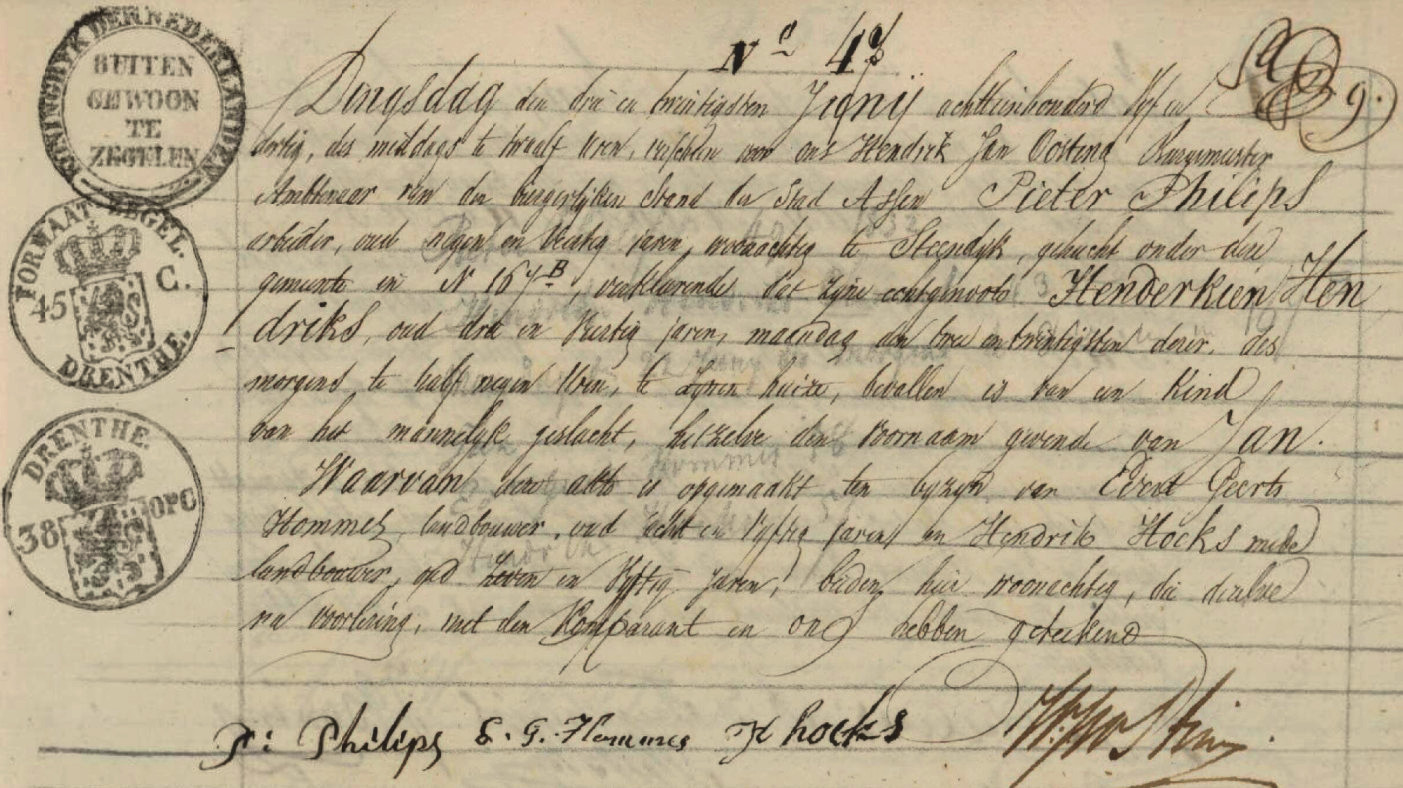 KONINGRYK DER NEDERLANDEN
BUITEN
GEWOON
TE
ZEGELEN
FORMAAT ZEGEL.
45 C.
DRENTHE.
DRENTHE.
38 OPC
No 48
9.
Dingsdag den drie en twintigsten Junij achttienhonderd vyf en
dertig, des middags te twaalf uren, verscheen voor ons Hendrik Jan Oosting Burgemeester
Ambtenaar van den burgerlyken stand der Stad Assen Pieter Philips
arbeider, oud negen en veertig jaren, woonachtig te Steendyk, gehucht onder deze
gemeente in No 167B, verklarende dat zyne echtgenoote Henderkien Hen
driks, oud drie en veertig jaren, maandag den twee en twintigsten dezer, des
morgens te half negen uren, te zynen huize, bevallen is van een Kind
van het mannelyk geslacht, hetzelve den voornaam gevende van Jan.
Waarvan deze akte is opgemaakt ten byzyn van Evert Geerts
Hommes, landbouwer, oud acht en vyftig jaren en Hendrik Hocks mede
landbouwer, oud zeven en vyftig jaren, beiden hier woonachtig, die dezelve
na voorlezing, met den Komparant en ons hebben geteekend
P: Philips E. G. Hommes H hocks